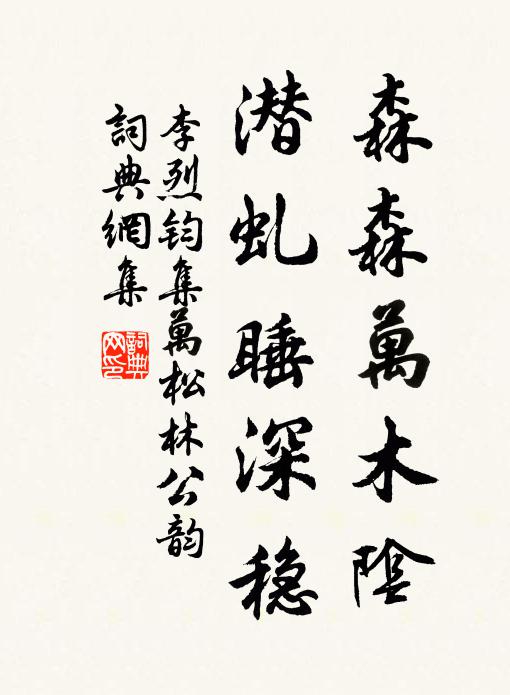 森森萬木陰
潜虬睡深稳
李烈钧集萬松林公韵
詞典網集
詞典网印